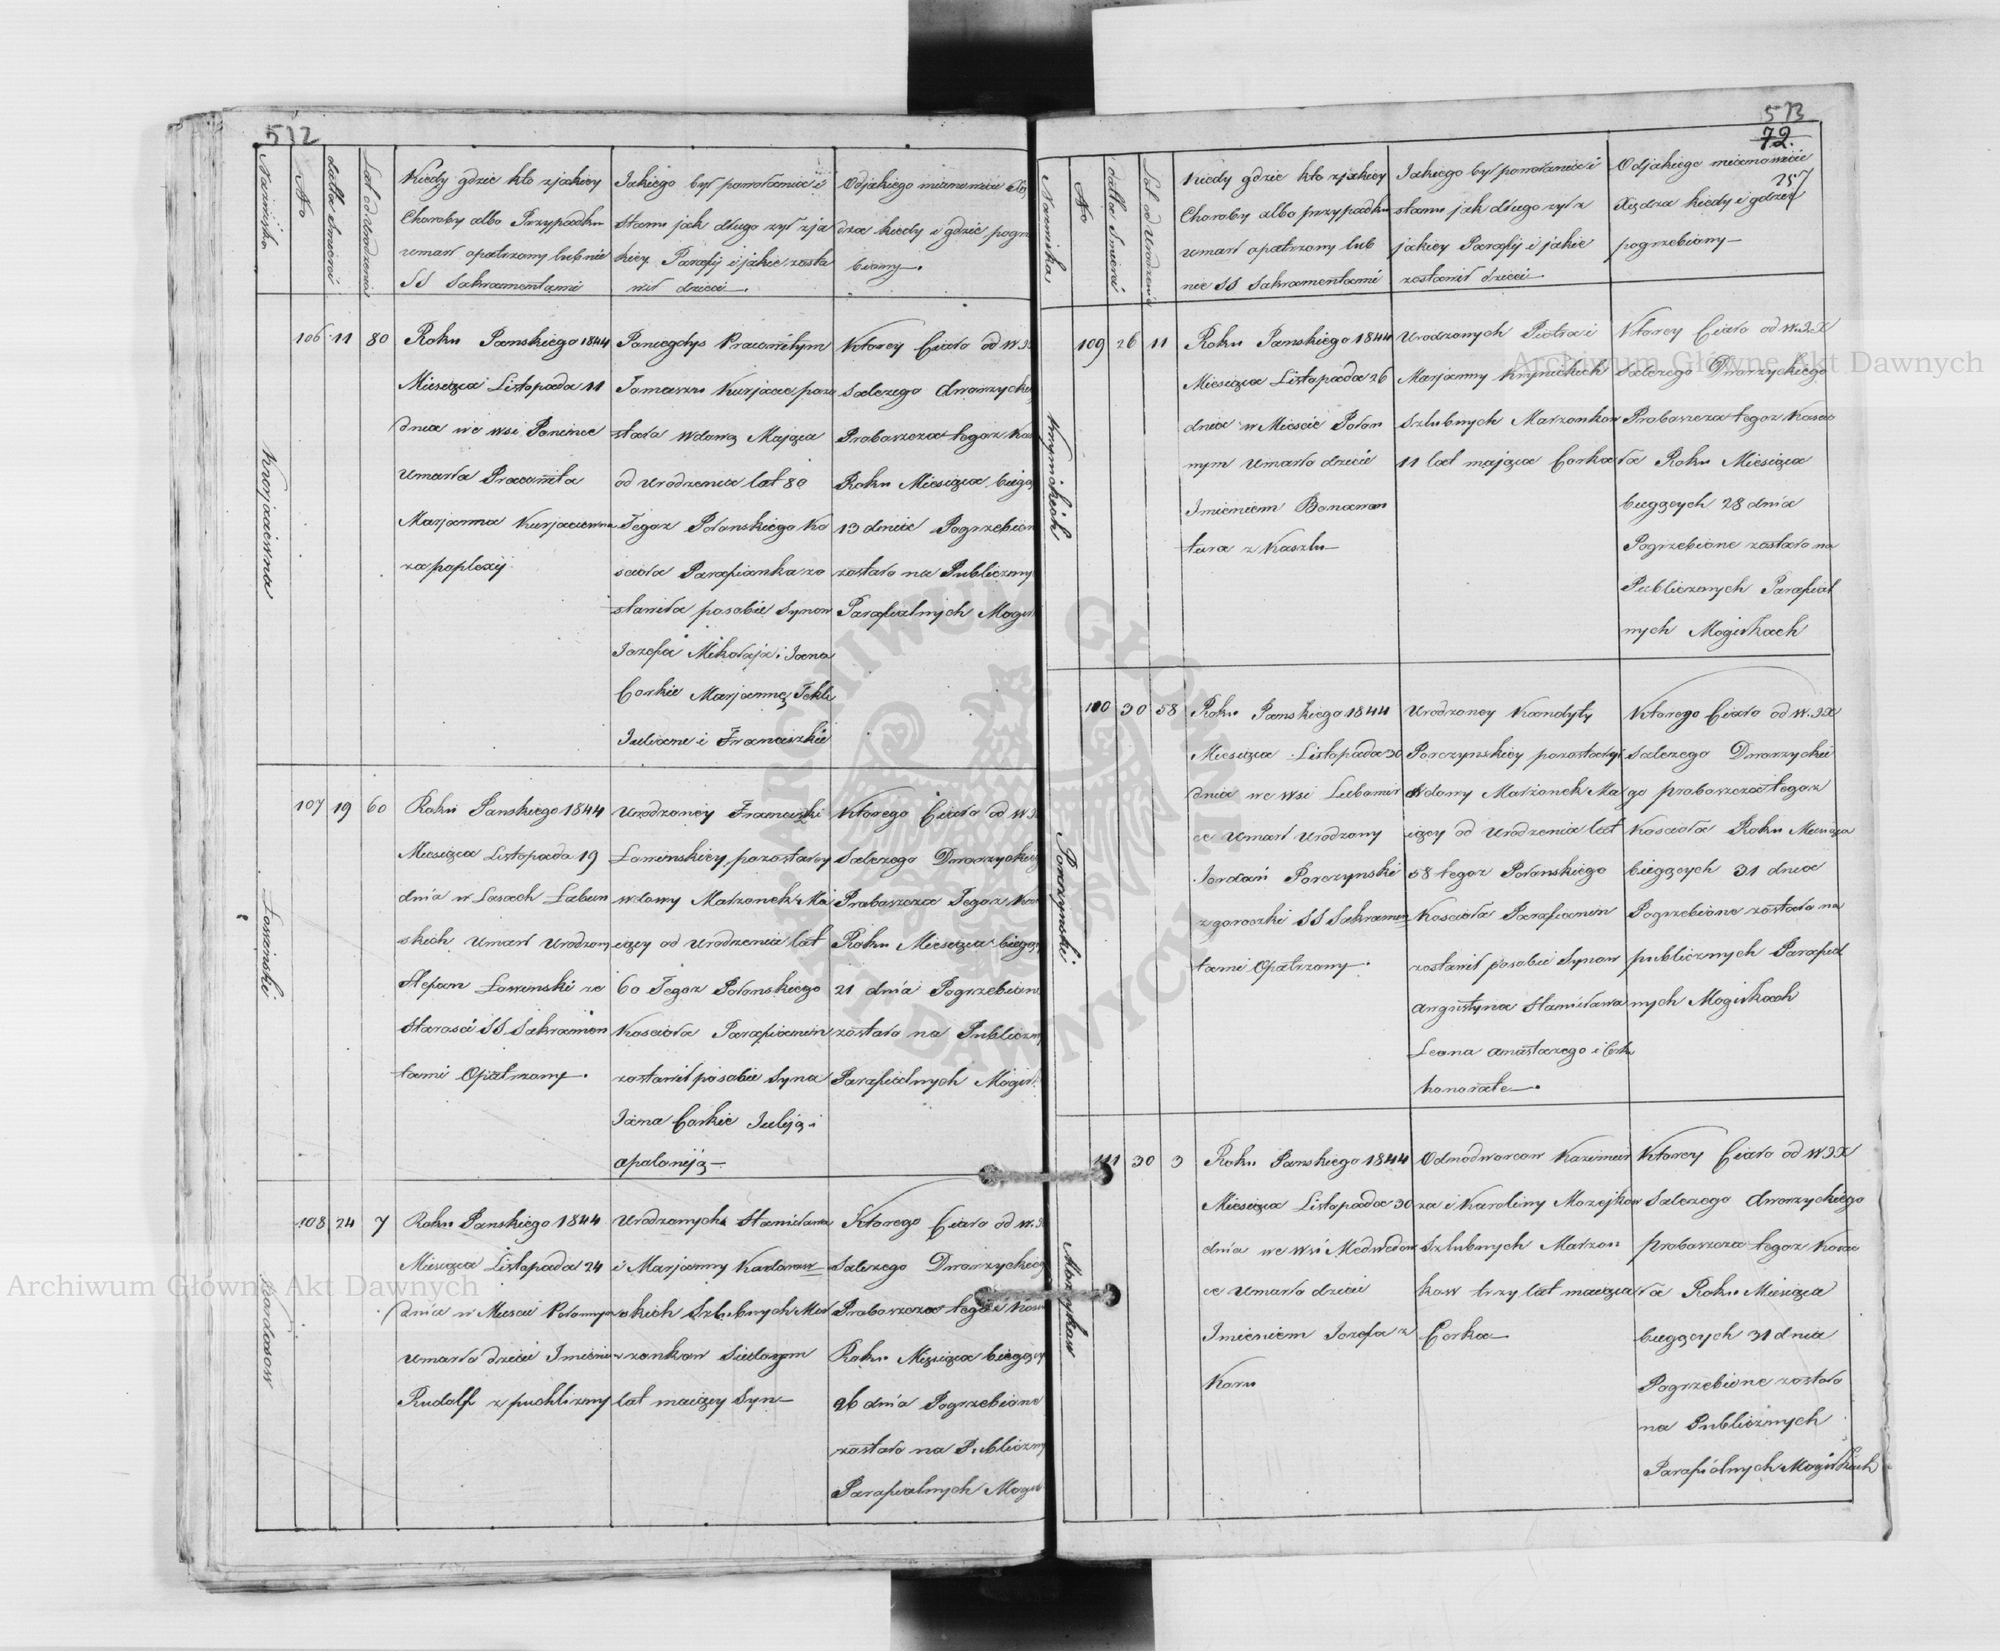 512
Nazwisko
No
datta Smierci
Lat od Urodzenia
Kiedy gdzie kto zjakiey
Choroby albo Przypadku
umarł opatrzony lub nie
SS Sakramentami
Jakiego był powołania i
stanu jak długo zył zja
kiey Parafij i jakie zosta
wił dzieci
Odjakiego mianowicie
dza kiedy i gdzie pogrz
biony
Kurjaciewna
106 11 80
Roku Panskiego 1844
Miesiąca Listopada 11
dnia we wsi Panince
Umarła Pracowita
Marjanna Kurjaciewna
zapoplexij
Poniegdys Pracowitym
Tomaszu Kurjacie pozo
stała wdową Mająca
od Urodzenia lat 80
Tegoz Połanskiego Ko
scioła Parafianka zo
stawiła posobie Synow
Jozefa Mikołaja i Jana
Corkie Marjannę Tekli
Julianę i Franciszkie
Ktorey Ciało od W.J.X
Salezego Dworzyckieg
Probaszcza tegoz Kos
Roku Miesiąca bieżą
13 dnia Pogrzebion
zostało na Publiczny
Parafialnych Mogił
Łowinski
107 19 60
Roku Panskiego 1844
Miesiąca Listopada 19
dnia w Lasach Łabun
skich Umarł Urodzon
Stefan Łowinski ze
Starosci SS Sakramen
tami Opatrzony
Urodzoney Franciszki
Łowinskiey pozostałey
wdowy Małzonek Ma
iący od Urodzenia lat
60 Tegoz Połanskiego
Koscioła Parafianin
zostawił posobie Syna
Jana Corkie Juliją i
Apaloniją
Ktorego Ciało od W.J
Salezego Dworzyckieg
Probaszcza Tegoz Kos
Roku Miesiąca bieżą
21 dnia Pogrzebione
zostało na Publiczny
Parafialnych Mogił
Kardasow
108 24 7
Roku Panskiego 1844
Miesiąca Listopada 24
dnia w Miescie Połonnym
Umarło dziecie Imieni
Rudolf z puchlizny
Urodzonych Stanisława
i Marjanny Kardasow
skich Szlubnych Mał
zonkow Siedmym
lat maiący Syn
Ktorego Ciało od W.J.
Salezego Dworzyckieg
Probaszcza tegoz Kos
Roku Miesiąca bieżący
26 dnia Pogrzebione
zostało na Publiczny
Parafialnych Mogił
573
72.
257
Nazwiska
No
datta Smierci
Lat od Urodzenia
Kiedy gdzie kto zjakiey
Choroby albo przypadku
umarł opatrzony lub
nie SS Sakramentami
Jakiego był powołania i
stanu jak długo zył z
jakiey Parafij i jakie
zostawił dzieci
Odjakiego mianowicie
Xiędza kiedy i gdzie
pogrzebiony
Krynickich
109 26 11
Roku Panskiego 1844
Miesiąca Listopada 26
dnia w Miescie Połon
nym Umarło dziecie
Imieniem Bonawen
tura z Kaszlu
Urodzonych Piotra i
Marjanny Krynickich
Szlubnych Małzonkow
11 lat mająca Corka
Ktorey Ciało od W.J.X
Salezego Dworzyckiego
Probaszcza tegoz Koscio
ła Roku Miesiąca
bieżących 28 dnia
Pogrzebione zostało na
Publicznych Parafial
nych Mogiłkach
Porczynski
110 30 58
Roku Panskiego 1844
Miesiąca Listopada 30
dnia we wsi Lubomir
ce Umarł Urodzony
Jordan Porczynski
zgoroczki SS Sakramen
tami Opatrzony
Urodzoney Kandyty
Porczynskiey pozostałey
wdowy Małzonek Ma
iący od Urodzenia lat
58 tegoz Połanskiego
Koscioła Parafianin
zostawił posobie Synow
Augustyna Stanisława
Leona Anastazego i Cork
honorate
Ktorego Ciało od W.J.X
Salezego Dworzyckie
go probaszcza tegoz
Koscioła Roku Miesiąca
bieżących 31 dnia
Pogrzebione zostało na
publicznych Parafial
nych Mogiłkach
Mozeykow
111 30 3
Roku Panskiego 1844
Miesiąca Listopada 30
dnia we wsi Medwedow
ce Umarło dziecie
Imieniem Jozefa z
Koru
Odnodworcow Kazimier
za i Karoliny Mozejkow
Szlubnych Małzon
kow trzy lat maiąca
Corka
Ktorey Ciało od W.J.X
Salezego Dworzyckiego
Probaszcza tegoz Koscio
ła Roku Miesiąca
bieżących 31 dnia
Pogrzebione zostało
na Publicznych
Parafialnych Mogiłkach
Archiwum Główne Akt Dawnych
Archiwum Główne Akt Dawnych
ARCHIWUM GŁÓWNE AKT DAWNYCH